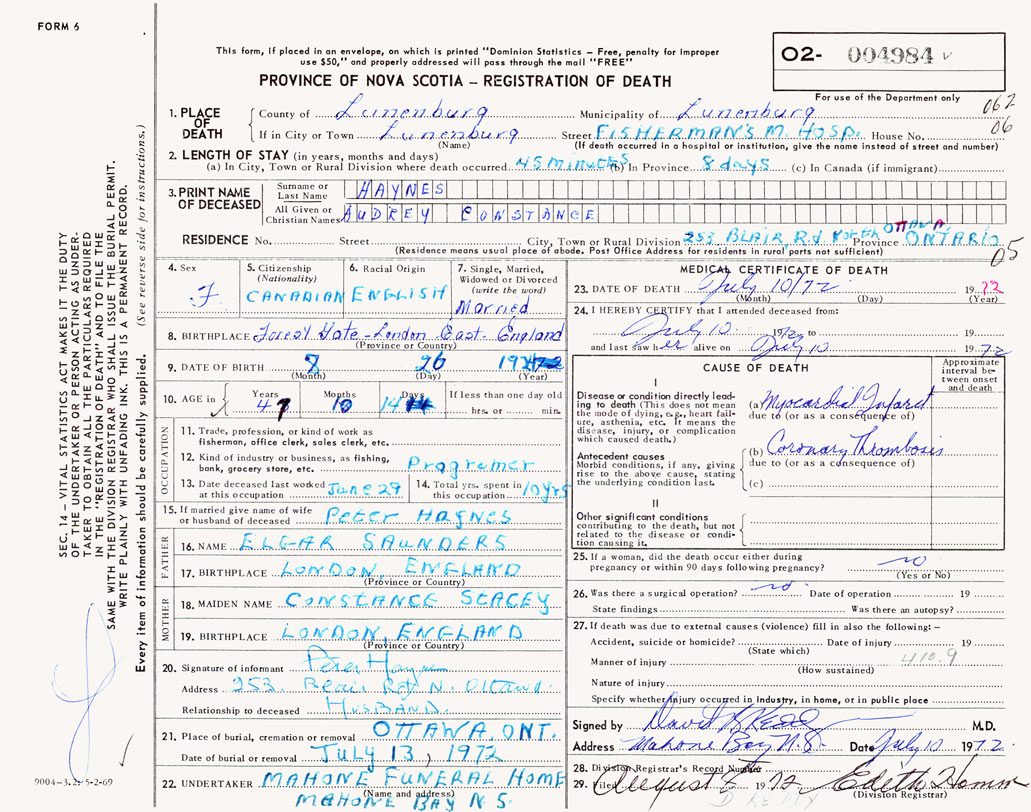 FORM 6
This form, if placed in an envelope, on which is printed "Dominion Statistics – Free, penalty for improper
use $50," and properly addressed will pass through the mail "FREE"
O2- 004984
For use of the Department only
PROVINCE OF NOVA SCOTIA – REGISTRATION OF DEATH
062
06
1. PLACE OF DEATH
County of Lunenburg Municipality of Lunenburg
If in City or Town Lunenburg Street FISHERMAN'S M. HOSP. House No.
(Name) (If death occurred in a hospital or institution, give the name instead of street and number)
2. LENGTH OF STAY (in years, months and days)
(a) In City, Town or Rural Division where death occurred 45 minutes (b) In Province 8 days (c) In Canada (if immigrant)
3. PRINT NAME OF DECEASED
Surname or Last Name HAYNES
All Given or Christian Names AUDREY CONSTANCE
RESIDENCE No. Street City, Town or Rural Division 253 BLAIR Rd North OTTAWA Province ONTARIO
(Residence means usual place of abode. Post Office Address for residents in rural parts not sufficient)
05
4. Sex F
5. Citizenship (Nationality) CANADIAN
6. Racial Origin ENGLISH
7. Single, Married, Widowed or Divorced (write the word) Married
8. BIRTHPLACE Forest Gate-London East-England
(Province or Country)
9. DATE OF BIRTH 8 26 19
(Month) (Day) (Year)
10. AGE in Years 47 Months 10 Days 14 If less than one day old hrs. or min.
OCCUPATION
11. Trade, profession, or kind of work as
fisherman, office clerk, sales clerk, etc.
12. Kind of industry or business, as fishing,
bank, grocery store, etc. Programer
13. Date deceased last worked at this occupation June 29
14. Total yrs. spent in this occupation 10 yrs
15. If married give name of wife
or husband of deceased Peter Haynes
FATHER
16. NAME ELGAR SAUNDERS
17. BIRTHPLACE LONDON, ENGLAND
(Province or Country)
MOTHER
18. MAIDEN NAME CONSTANCE STACEY
19. BIRTHPLACE LONDON, ENGLAND
(Province or Country)
20. Signature of informant Peter Haynes
Address 253 Blair Rd N. Ottawa
Relationship to deceased HUSBAND
21. Place of burial, cremation or removal OTTAWA, ONT.
Date of burial or removal JULY 13, 1972
22. UNDERTAKER MAHONE FUNERAL HOME
(Name and address)
MAHONE BAY N.S.
MEDICAL CERTIFICATE OF DEATH
23. DATE OF DEATH July 10/72 19 72
(Month) (Day) (Year)
24. I HEREBY CERTIFY that I attended deceased from:
July 10 1972 to 19
and last saw her alive on July 10 1972
CAUSE OF DEATH
Approximate interval between onset and death
I
Disease or condition directly leading to death (This does not mean
the mode of dying, e.g., heart failure, asthenia, etc. It means the
disease, injury, or complication
which caused death.)
(a) Myocardial Infarct
due to (or as a consequence of)
Antecedent causes
Morbid conditions, if any, giving
rise to the above cause, stating
the underlying condition last.
(b) Coronary Thrombosis
due to (or as a consequence of)
(c)
II
Other significant conditions
contributing to the death, but not
related to the disease or condition causing it.
25. If a woman, did the death occur either during
pregnancy or within 90 days following pregnancy? no
(Yes or No)
26. Was there a surgical operation? no Date of operation 19
State findings Was there an autopsy?
27. If death was due to external causes (violence) fill in also the following:–
Accident, suicide or homicide? Date of injury 19
(State which)
Manner of injury 410.9
(How sustained)
Nature of injury
Specify whether injury occurred in industry, in home, or in public place
Signed by David M.D.
Address Mahone Bay N.S. Date July 10 1972.
28. Division Registrar's Record Number
29. Filed August 1972 Edith
(Division Registrar)
SEC. 14 – VITAL STATISTICS ACT MAKES IT THE DUTY
OF THE UNDERTAKER OR PERSON ACTING AS UNDERTAKER TO OBTAIN ALL THE PARTICULARS REQUIRED
IN THE "REGISTRATION OF DEATH" AND TO FILE THE
SAME WITH THE DIVISION REGISTRAR WHO SHALL ISSUE THE BURIAL PERMIT.
WRITE PLAINLY WITH UNFADING INK. THIS IS A PERMANENT RECORD.
Every item of information should be carefully supplied. (See reverse side for instructions.)